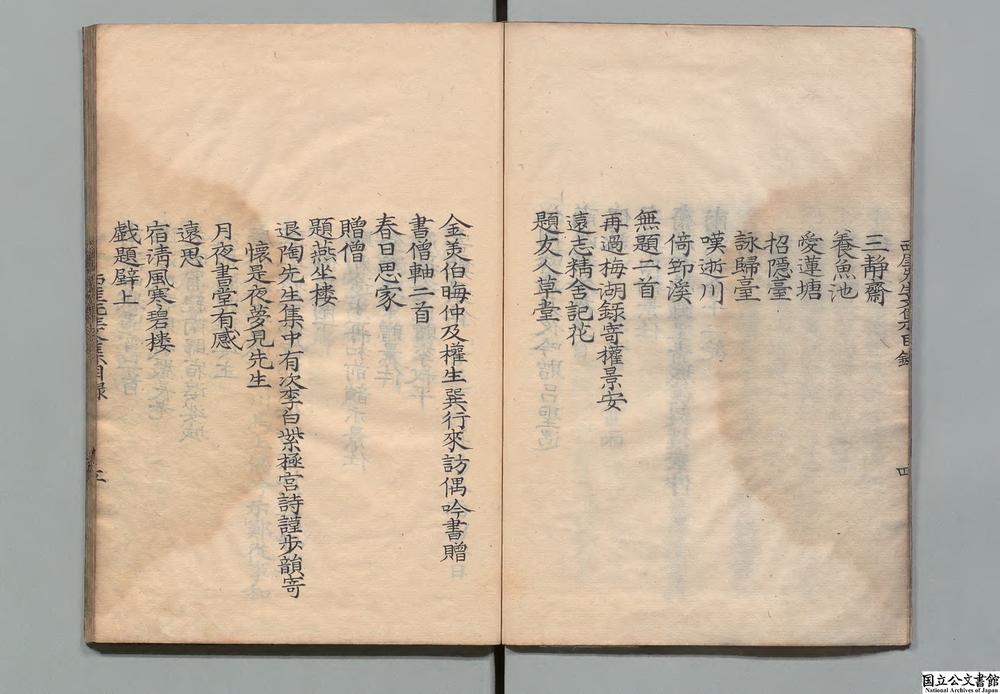 三靜齋
養魚池
愛蓮塘
招隱臺
詠歸臺
嘆逝川
倚筇溪
無題二首
再過梅湖録寄權景安
遠志精舍記花
題友人草堂
四
金羙伯晦仲及權生㢲行來訪偶吟書贈
書僧軸二首
春日思家
贈僧
題燕坐樓
退陶先生集中有次李白紫極宮詩謹步韻寄
懷是夜夢見先生
月夜書堂有感
遠思
宿淸風寒碧樓
戱題壁上
國立公文書館
National Archives of Japan